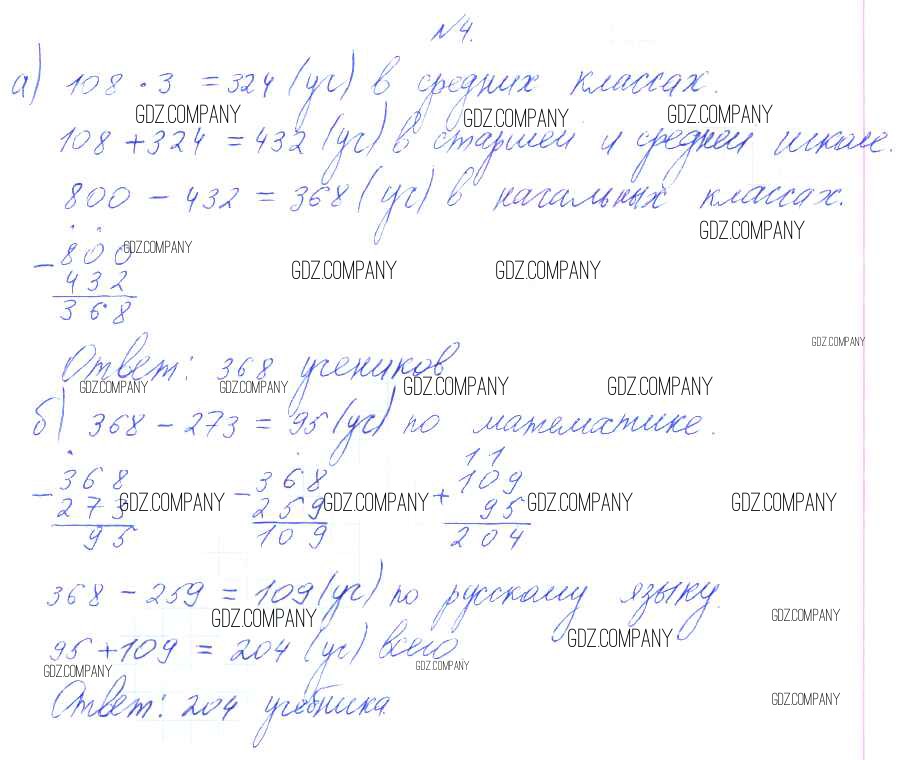 №4.
а) 108 · 3 = 324 (уч) в средних классах.
GDZ.COMPANY GDZ.COMPANY GDZ.COMPANY
108 + 324 = 432 (уч) в старшей и средней школе.
800 - 432 = 368 (уч) в начальных классах.
GDZ.COMPANY
- 800 GDZ.COMPANY
432 GDZ.COMPANY GDZ.COMPANY
368
GDZ.COMPANY
Ответ: 368 учеников
GDZ.COMPANY GDZ.COMPANY GDZ.COMPANY GDZ.COMPANY
б) 368 - 273 = 95 (уч) по математике.
11
- 368 - 368 + 109
273 GDZ.COMPANY 259 GDZ.COMPANY 95 GDZ.COMPANY GDZ.COMPANY
95 109 204
368 - 259 = 109 (уч) по русскому языку.
GDZ.COMPANY GDZ.COMPANY
95 + 109 = 204 (уч) всего GDZ.COMPANY
GDZ.COMPANY GDZ.COMPANY
Ответ: 204 учебника. GDZ.COMPANY